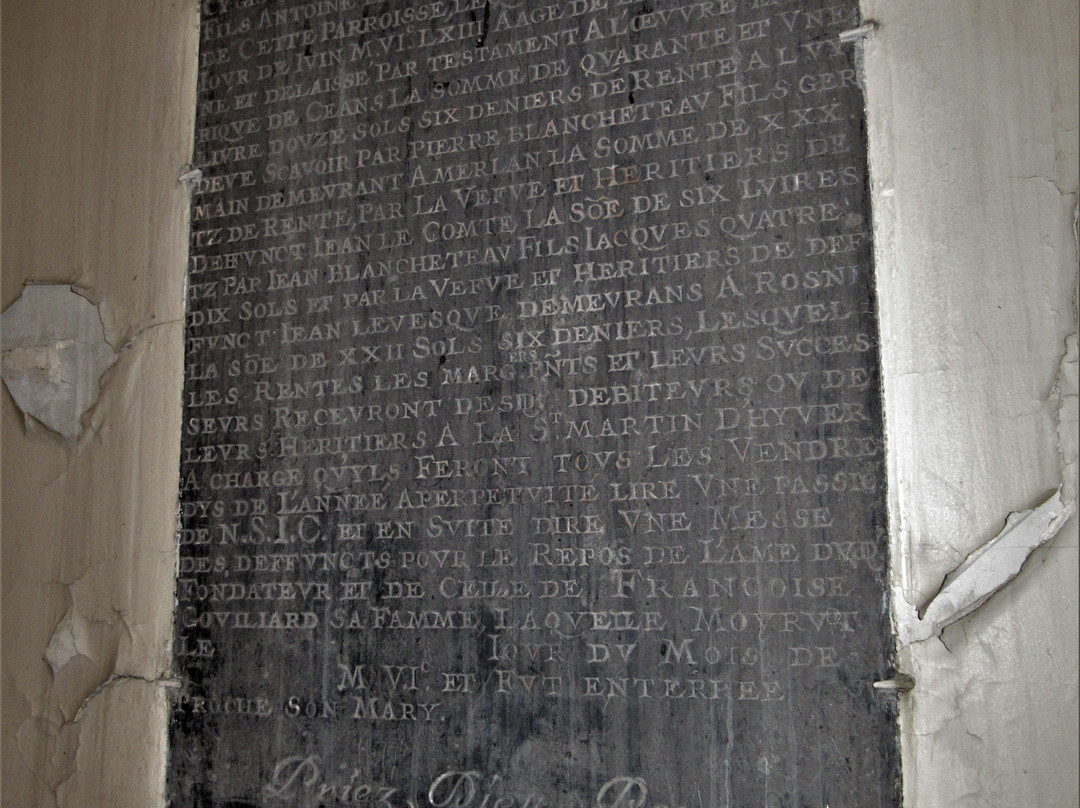 FILS ANTOINE
DE CETTE PARROISSE,
IOVR DE IVIN M.VI.^c LXIII AAGE DE
NE ET DELAISSE PAR TESTAMENT A L'ŒVVRE
RIQVE DE CEANS LA SOMME DE QVARANTE ET VNE
LIVRE DOVZE SOLS SIX DENIERS DE RENTE A LVY
DEVE SCAVOIR PAR PIERRE BLANCHETEAV FILS GER
MAIN DEMEVRANT AMERLAN LA SOMME DE XXX
TZ DE RENTE, PAR LA VEFVE ET HERITIERS DE
DEFFVNCT IEAN LE COMTE LA SOE DE SIX LVIRES
TZ PAR IEAN BLANCHETEAV FILS IACQVES QVATRE
DIX SOLS ET PAR LA VEFVE ET HERITIERS DE DEF
FVNCT IEAN LEVESQVE DEMEVRANS Á ROSNI
LA SÕE DE XXII SOLS SIX DENIERS, LESQVEL
LES RENTES LES MARG^ERS PÑTS ET LEVRS SVCCES
SEVRS RECEVRONT DESD^S DEBITEVRS OV DE
LEVRS HERITIERS A LA S^T MARTIN D'HYVER
A CHARGE QVYLS FERONT TOVS LES VENDRE
DYS DE L'ANNEE APERPETVITE LIRE VNE PASSIO
DE N.S.I.C. ET EN SVITE DIRE VNE MESSE
DES DEFFVNCTS POVR LE REPOS DE L'AME DVD.
FONDATEVR ET DE CELLE DE FRANCOISE
GOVILIARD SA FAMME LAQVELLE MOVRVT
LE IOVR DV MOIS DE
M.VI^c. ET FVT ENTERREE
PROCHE SON MARY.
Priez Dieu